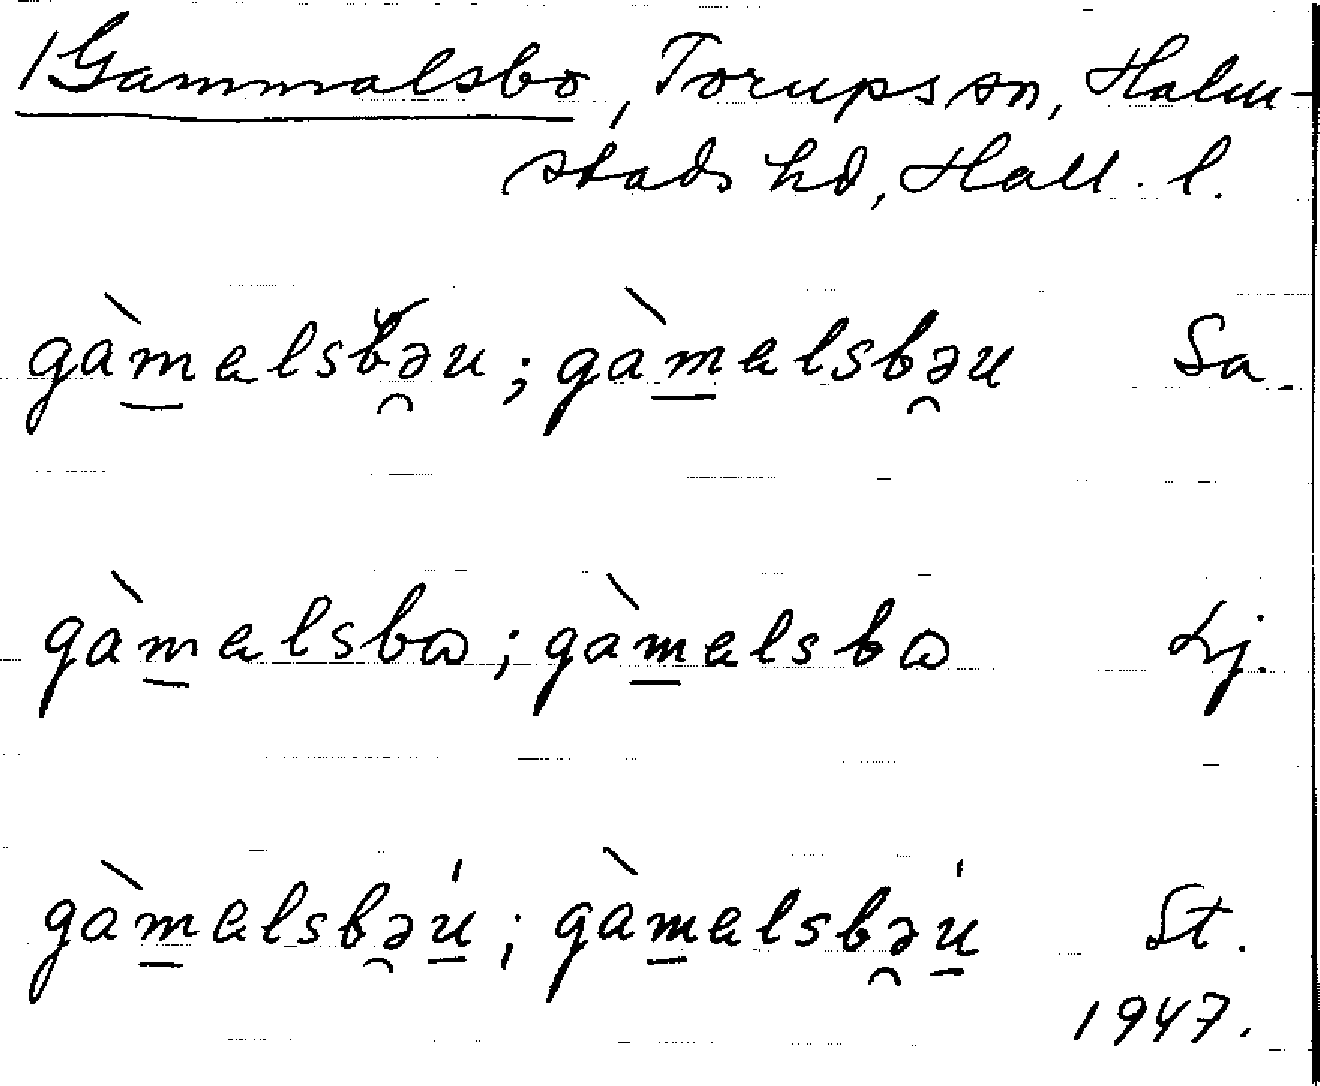 /Gammalsbo, Torups sn, Halm-
stads hd, Hall. l.
gàm̲alsbəu; gàm̲alsbəu Sa.
gàm̲alsbɷ; gàm̲alsbɷ Lj.
gàm̲alsbəú̲; gàm̲alsbəú̲ St.
1947.